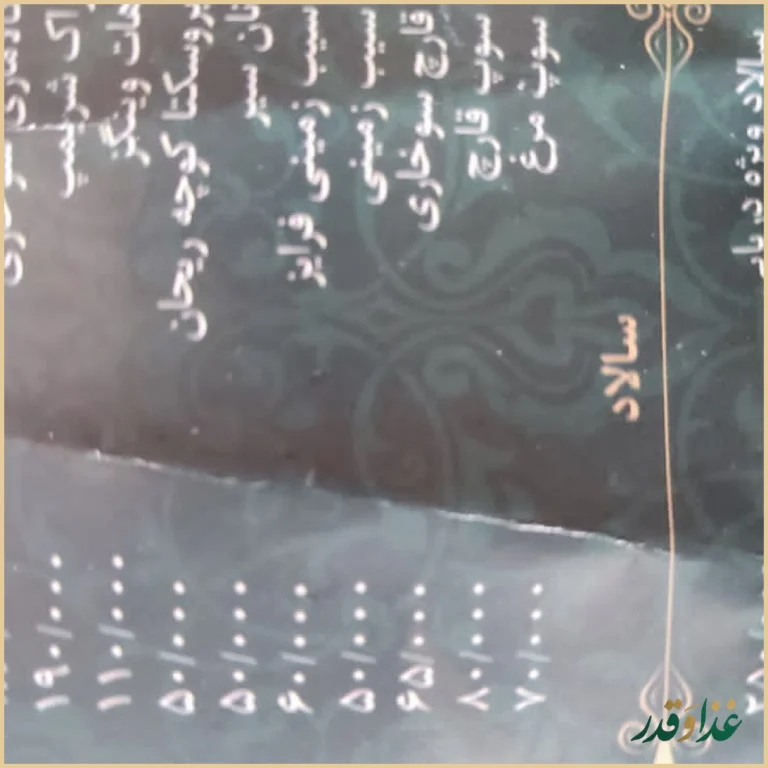 شریمپ ۱۹۰/۰۰۰
هات وینگز ۱۱۰/۰۰۰
بروسکتا گوجه ریحان ۵۰/۰۰۰
نان سیر ۵۰/۰۰۰
سیب زمینی فرایز ۶۰/۰۰۰
سیب زمینی ۵۰/۰۰۰
قارچ سوخاری ۶۵/۰۰۰
سوپ قارچ ۸۰/۰۰۰
سوپ مرغ ۷۰/۰۰۰
سالاد
سالاد ویژه
غذا و قدر